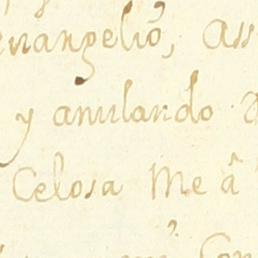 evangelió, ass
y anulando
Celosa Me â